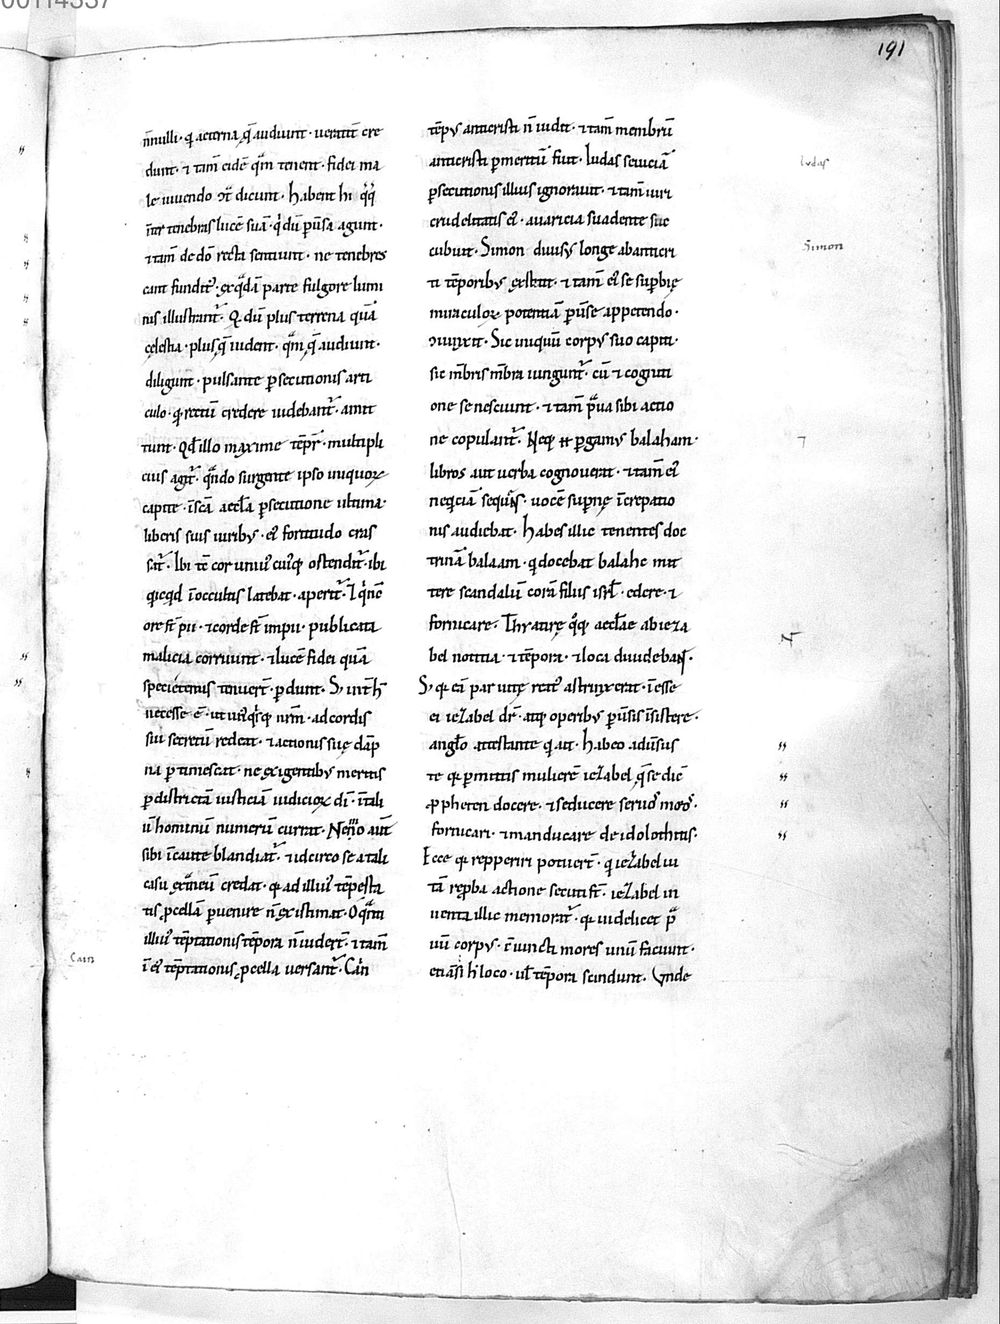 00114337
191
n̄nulli· q̨ aeterna q̄ audiunt· ueraciť cre
dunt· ⁊ tam̄ eidē q̄m tenent· fidei ma
le uiuendo ɔtͬdicunt· Habent hi q̊q̨
int̄ tenebras lucē suā· q̨ dū puersa agunt·
⁊ tam̄ de dō recta sentiunt· ne tenebres
cant fundit᷒· ex q̄dā parte fulgore lumi
nis illustrant᷑· Qͥ dū plus terrena quā
cęlestia· plus q̄ uident· q̄m q̄ audiunt·
diligunt· pulsante psecutionis arti
culo· q̨ rectū credere uidebant᷑· amit
tunt· Qd̄ illo maxime temp᷑r· multipli
cius agit᷑· q̄ndo surgente ipso iniquoꝝ
capite· c̄ scā aeccl̄a psecutione ultima·
liberis suis uiribꝰ· eiꝰ fortitudo cras
sat᷑· Ibi tē cor uniuꝰ cuiꝰq̨ ostendit᷑· ibi
qicqd in occultis latebat· aperit᷑· Iq̊ nc̄
ore sť pii· ⁊ corde sť impii· publicata
malicia corruunt· ⁊ lucē fidei quā
specietenus tenuerť· pdunt· S; int̄ h̄
necesse ē· ut unꝰqͥsq̨ nrm̄· ad cordis
sui secretū redeat· ⁊ actionis suę dāp
na ptimescat· ne exigentibꝰ meritis
p districtā iusticiā iudicioꝝ di᷑· in tali
ū hominū numerū currat· Nemo aut̄
sibi incaute blandiat᷑· ⁊ idcirco se a tali
casu extͣneū credat· q̨ ad illiuꝰ tēpesta
tis pcellā puenire n̄ existimat· O q̄m̄ti
illiuꝰ tēptationis tēpora n̄ uiderť· ⁊ tam̄
in eiꝰ tēptationis pcella uersant᷑· Cain
Cain
tēpꝰ anticristi n̄ uidit· ⁊ tam̄ membrū
anticristi p meritū fuit· Iudas seuiciā
psecutionis illius ignorauit· ⁊ tam̄ iuri
crudelitatis eiꝰ· auaricia suadente suc
cubuit· Simon diuisꝰ longe ab anticri
sti tēporibꝰ extitit· ⁊ tam̄ eiꝰ se supbię
miraculoꝝ potentiā puerse appetendo·
ɔiunxit· Sic iniquū corpꝰ suo capiti·
sic mēbris mēbra iungunt᷑· cū ⁊ cogniti
one se nesciunt· ⁊ tam̄ praua sibi actio
ne copulant᷑· Neq̨ pgamꝰ balaham·
libros aut uerba cognouerat· ⁊ tam̄ eiꝰ
neq̨ciā sequēs· uocē supnę increpatio
nis audiebat· Habes illic tenentes doc
trinā balaam· q̨ docebat balahc mit
tere scandalū corā filiis isrl̄· edere· ⁊
fornicare· Thyatirę q̊q̨ aeccl̄ae ab ieza
bel notitia· ⁊ tēpora· ⁊ loca diuidebant·
S; q̨ eā par uitę reatꝰ astrinxerat· inesse
ei iezabel dr᷑· atq̨ operibꝰ puersis insistere·
anglo attestante q̨ ait· Habeo aduersus
te q̨ pmittis mulierē iezabel q̄ se dic̄
ppheten docere· ⁊ seducere seruos meos·
fornicari· ⁊ manducare de idolothitis·
Ecce q̨ repperiri potuerť· q̨ iezabel ui
tā reproba actione secuti sť· iezabel in
uenta illic memorat᷑· q̨ uidelicet pra
uū corpꝰ· c̄iuncti mores unū faciunt·
etiāsi h̄ loco· ul̄ tēpora scindunt· Unde
Iudas
Simon